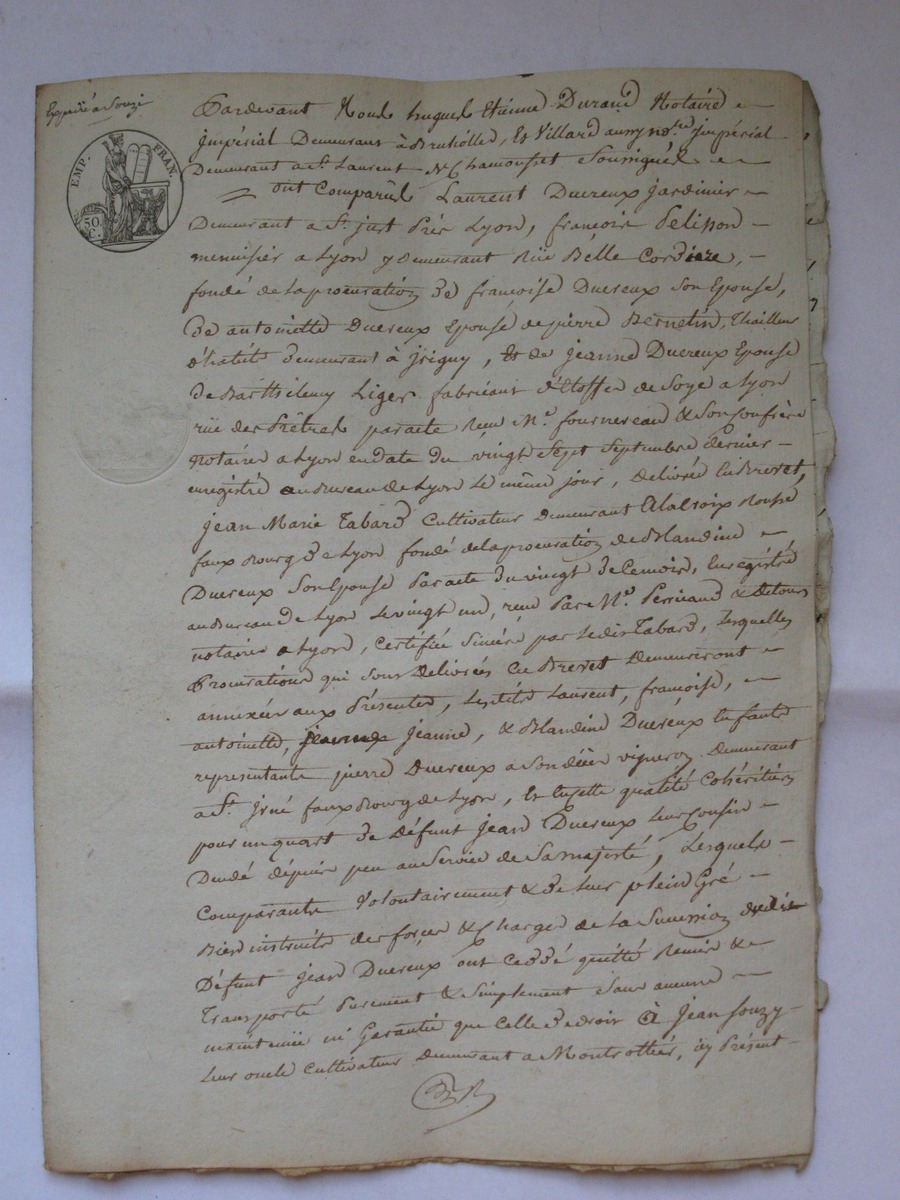 Expédié a Souzi
EMP. FRAN.
50
C.
Pardevant Nous hugues Etienne Durand Notaire
impérial Demeurant à Brullolle, Et Villard aussy no.re impérial
Demeurant a St. Laurent de Chamousset Soussignés
ont Comparus Laurent Ducreux jardinier
Demeurant a St. just Près Lyon, françois Pelisson
menuisier a Lyon y demeurant Rüe Belle Cordiere,
fondé de la procuration de françoise Ducreux son Epouse,
de antoinette Ducreux Epouse de pierre Bernetin, thailleur
d'habits demeurant à jrigny, & de jeanne Ducreux Epouse
de Barthelemy Liger fabricant d'Etoffes de Soye a Lyon
rüe des Prêtres par acte Reçu Me. fournereau & Son Confrère
notaires a Lyon en date du vingt Sept Septembre dernier
enregistré au Bureau de Lyon le même jour, délivrée En Brevet,
jean Marie Tabard Cultivateur Demeurant A la Croix Rousse
faux Bourg de Lyon fondé de la procuration de Blandine
Ducreux Son Epouse Par acte du vingt de Ce mois, Enregistré
au Bureau de Lyon le vingt un, reçu Par Me. Perricaud &
notaires a Lyon, Certifiée Sincère par le dit Tabard, lesquelles
Procurations qui sont Délivrées en Brevet Demeureront
annixées aux Présentes, les dits Laurent, françoise,
antoinette, jeanne, & Blandine Ducreux Enfants
representants pierre Ducreux a Son décès vigneron demeurant
a St. jrné faux Bourg de Lyon, Et En cette qualité Cohéritiers
pour un quart de Défunt jean Ducreux leur Cousin
Dcedé dépuis peu au Service de Sa majesté, Lesquels
Comparants Volontairement & de leur plein Gré
Bien instruits des forces & Charges de la Succession dudit
Défunt jean Ducreux ont Ceddé quitté Remis &
Transporté Purement & Simplement Sans aucune
maintenüe ni Garantie que Celle de droit à jean Souzy
leur oncle Cultivateur Demeurant a Montrottier, icy Présent